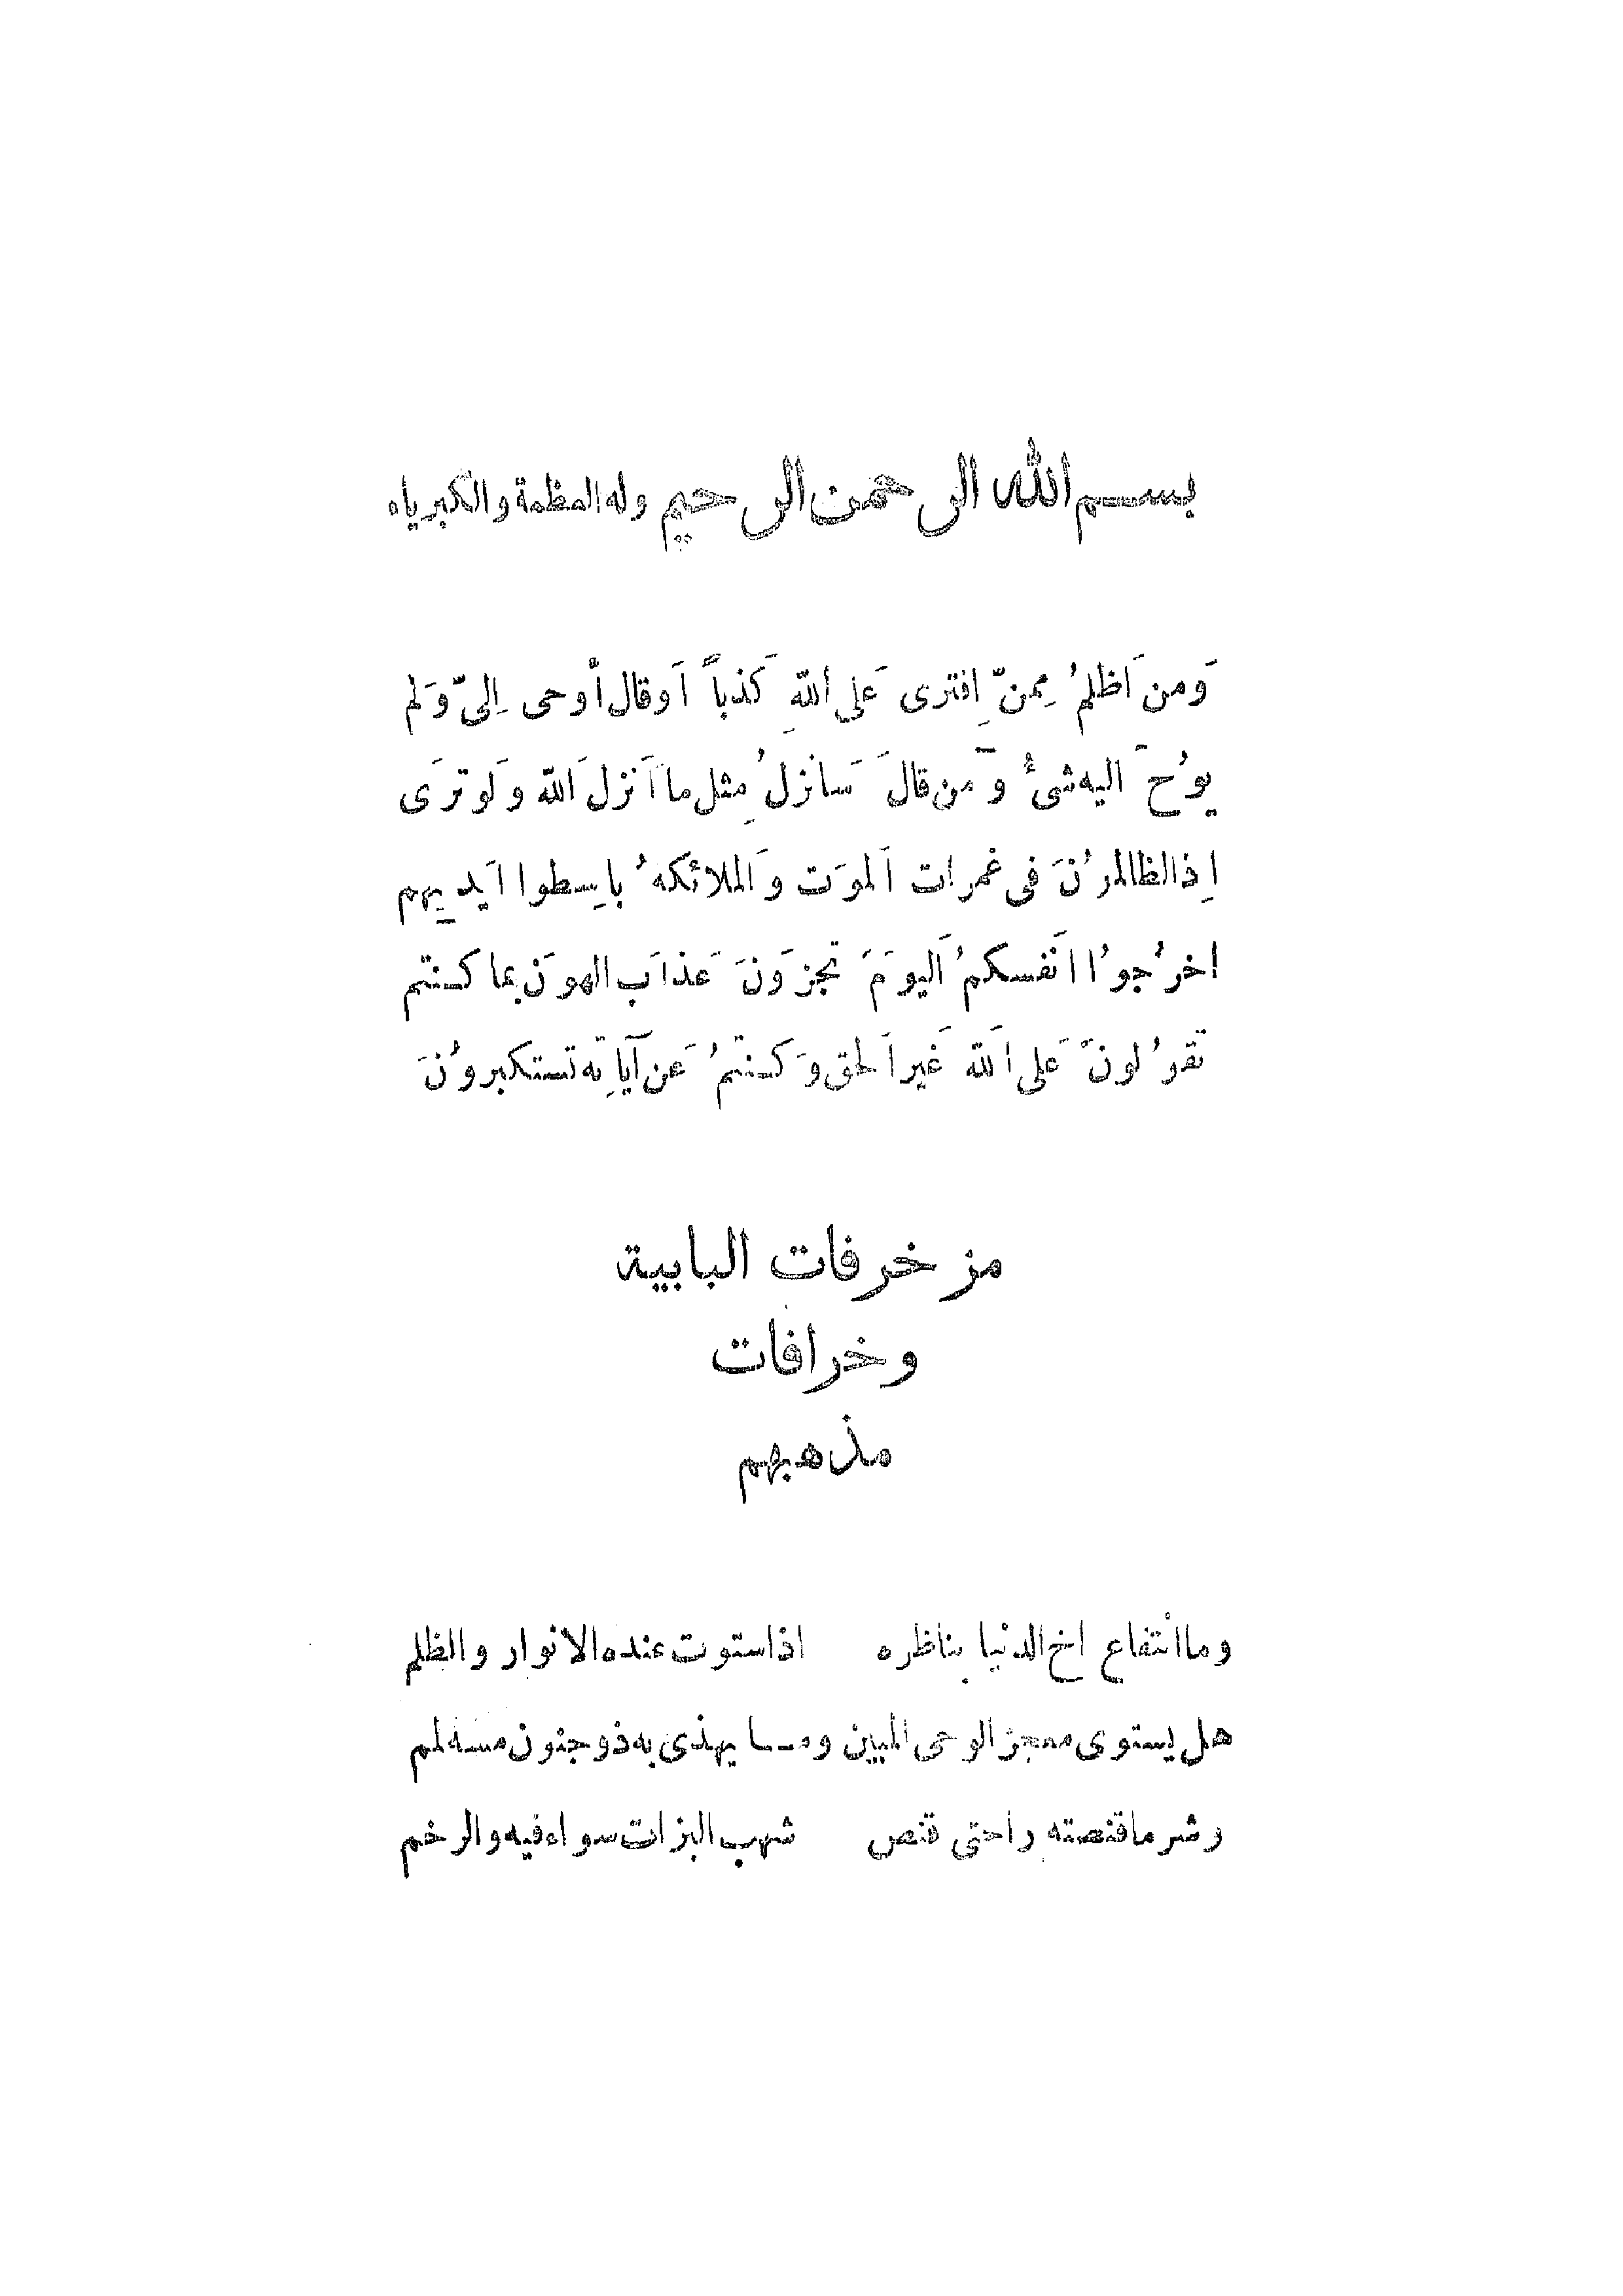 بسم الله الرحمن الرحيم وله العظمة والكبرياه
وَمن اَظلمُ مِمنّ اِفترى عَلى اللّهِ كَذباً اَوقال أوحى اِلىّ وَلم
يوُحَ اليه شئٌ وَ من قالَ سَانزلُ مِثل ما اَنزل اَللّه وَلو ترَى
اِذالظالمرُنَ فى غمرات اَلموَت وَالملائكهُ باسِطوا اَيديهِم
اخرُجوُا اَنفسكمُ اَليوَمَ تجزوَنَ عَذاَب الهوَن بما كنتم
تقوُلونَ عَلى اَللّه غَير اَلحق وَكنتمُ عَن آياتِه تستكبروُنَ
مزخرفات البابية
وخرافات
مذهبهم
وما انتفاع اخ الدنيا بناظره اذا ستوت عنده الانوار والظلم
هل يستوى معجز الوحى المبين ومــا يهذى به ذوجنون مسه لمم
وشر ما قنصته راحتى قنص شهب البزات سواء فيه والرخم